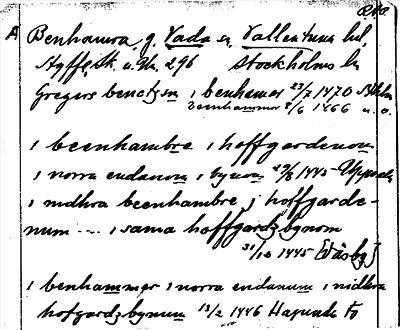 RAÄ.
A Benhamra, g. Vada sn Vallentuna hd,
Styffe, Sk. u. Un. 296 Stockholms l.
Gregers benctzsen i benhamar 23/7 1470 Sthlm
i beenhammer 8/6 1466 u. o.
i beenhambre i hoffgardenom
i norra endanom i bynom 29/8 1445 Uppsala
i nidhra beenhambre j hoffgarde-
num --- i sama hoffgardz bynom
31/10 1445 [Väsby]
i benhammer i norra endanum i nidhra
hofgardz bynum 13/2 1446 Hapunde